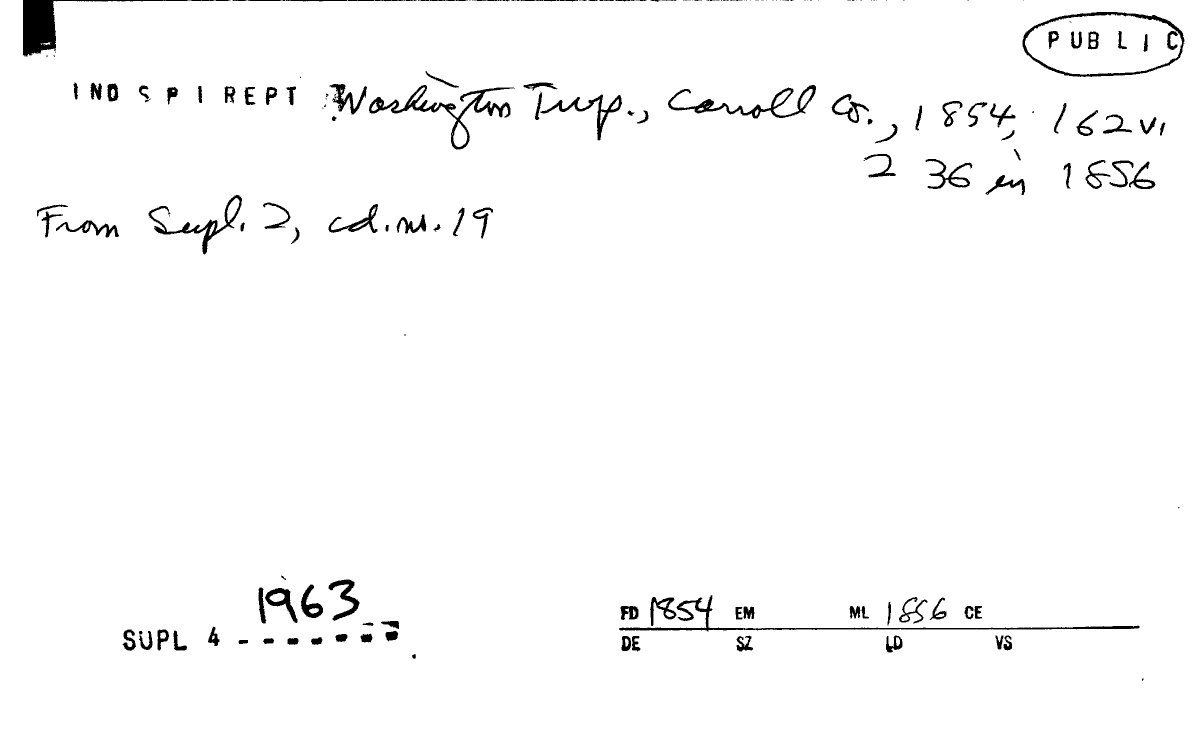 PUBLIC
IND SPI REPT Washington Twp., Carroll Co., 1854, 162 v.
2 36 in 1856
From Supl. 2, cd. no. 19
1963
SUPL 4 - - - - - - -
FD 1854 EM ML 1856 CE
DE SZ LD VS